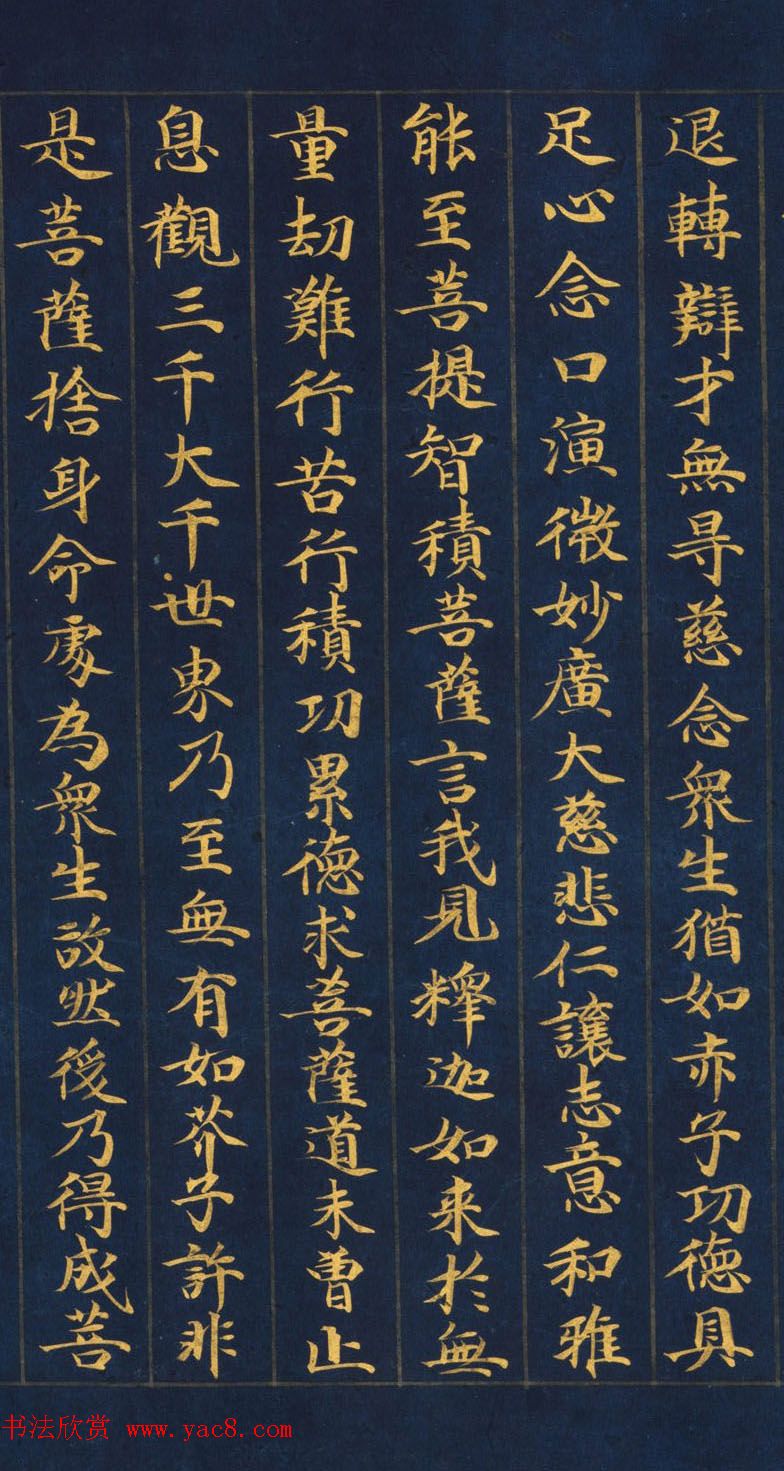 退轉辯才無㝵慈念衆生猶如赤子功德具
足心念口演微妙廣大慈悲仁讓志意和雅
能至菩提智積菩薩言我見釋迦如来於無
量劫難行苦行積功累德求菩薩道未曽止
息觀三千大千世界乃至無有如芥子許非
是菩薩捨身命處為衆生故然後乃得成菩
书法欣赏 www.yac8.com